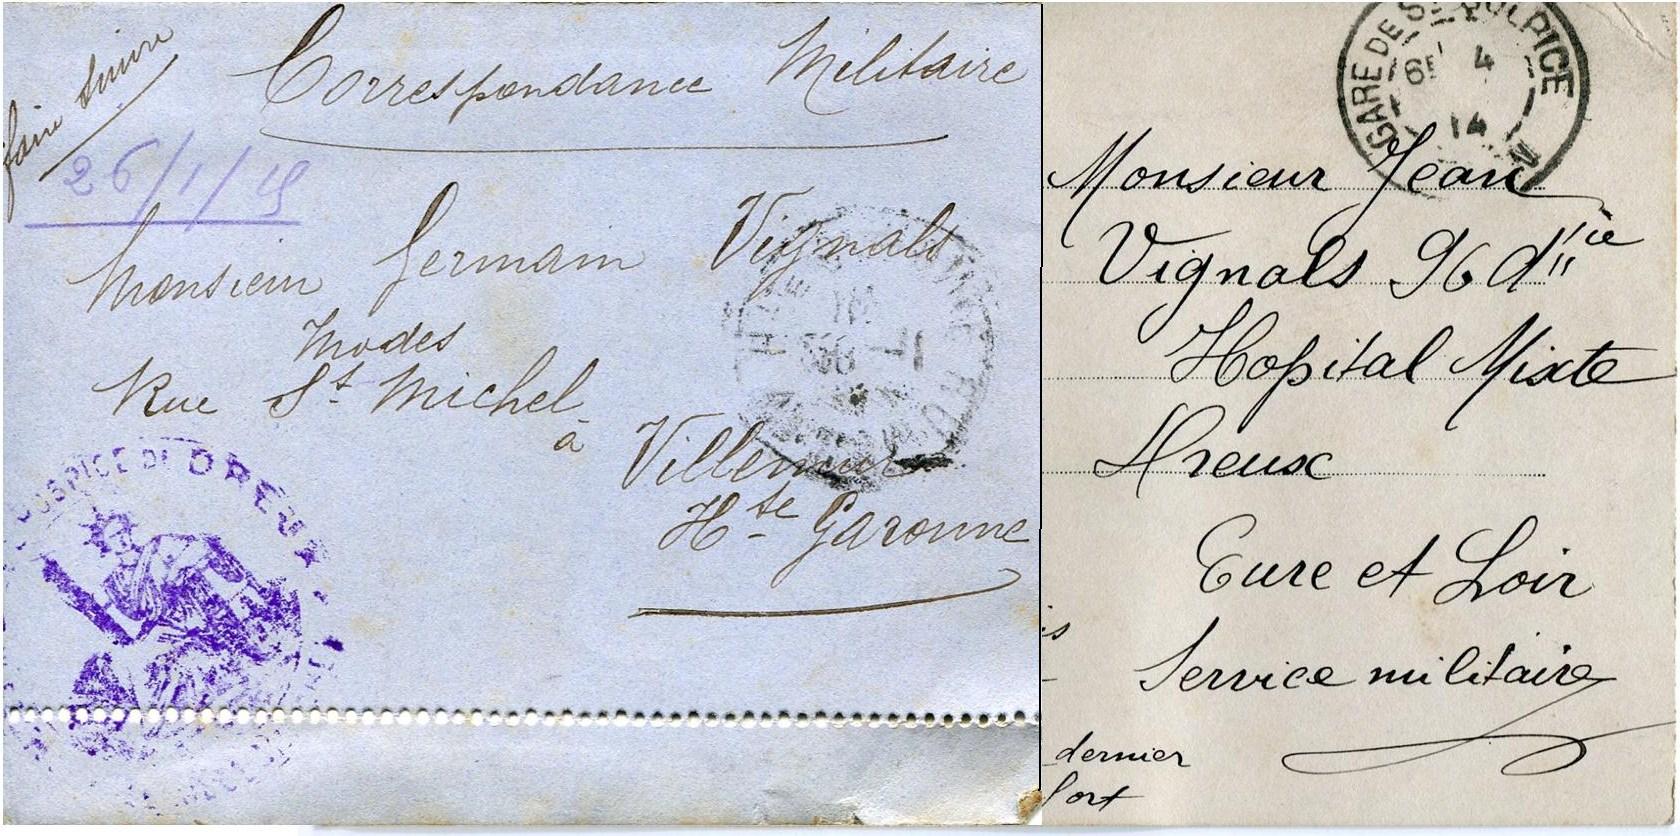 faire suivre
Correspondance Militaire
26/1/15
Monsieur Germain Vignals
Modes
Rue St Michel
à Villemur
Hte Garonne
HOSPICE DE DREUX
GARE DE ST SULPICE
6E 4
14
Monsieur Jean
Vignals 96 d
Hopital Mixte
Dreux
Eure et Loir
Service militaire
dernier
fort